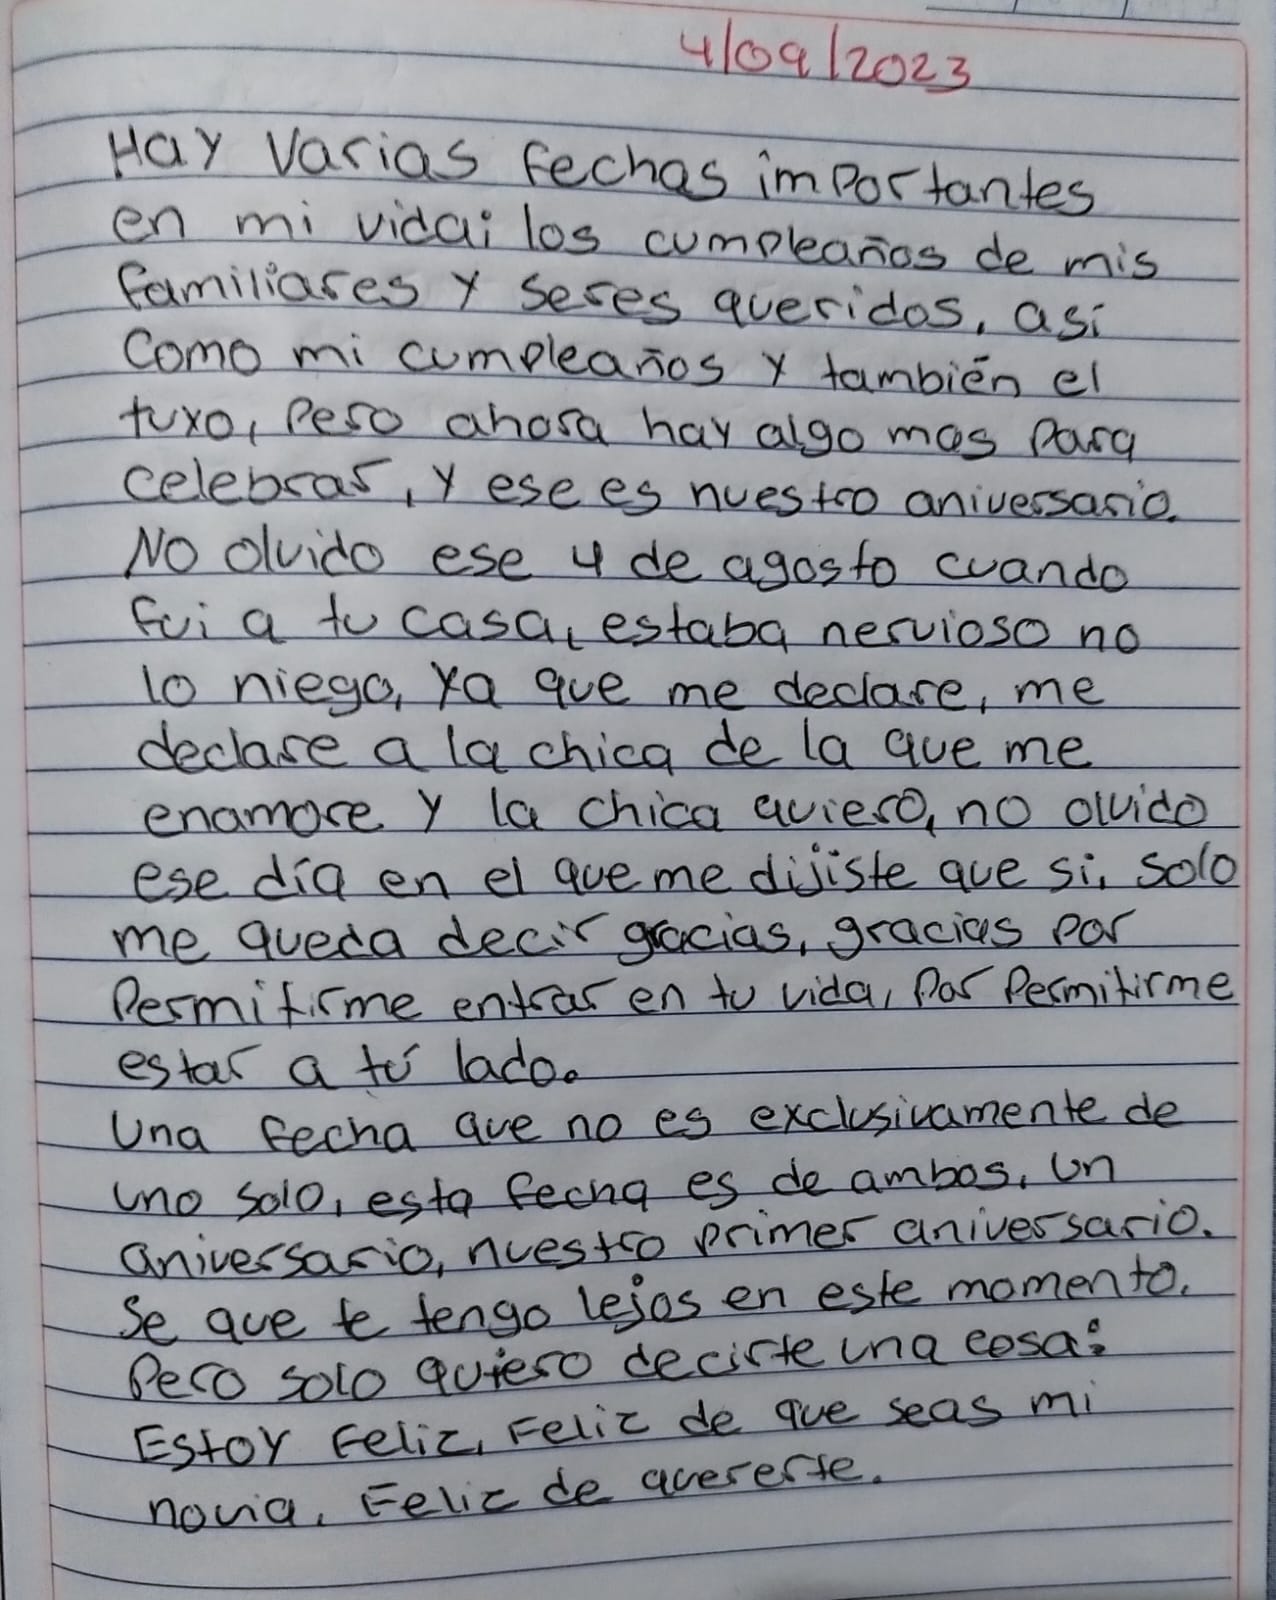 4/09/2023
Hay varias fechas importantes
en mi vida; los cumpleaños de mis
familiares y seres queridos, así
como mi cumpleaños y también el
tuyo, pero ahora hay algo mas para
celebrar, y ese es nuestro aniversario.
No olvido ese 4 de agosto cuando
fui a tu casa, estaba nervioso no
lo niego, ya que me declare, me
declare a la chica de la que me
enamore y la chica quiero, no olvido
ese día en el que me dijiste que si, solo
me queda decir gracias, gracias por
permitirme entrar en tu vida, por permitirme
estar a tú lado.
Una fecha que no es exclusivamente de
uno solo, esta fecha es de ambos, un
aniversario, nuestro primer aniversario.
Se que te tengo lejos en este momento,
pero solo quiero decirte una cosa:
Estoy feliz, feliz de que seas mi
novia, Feliz de quererte.